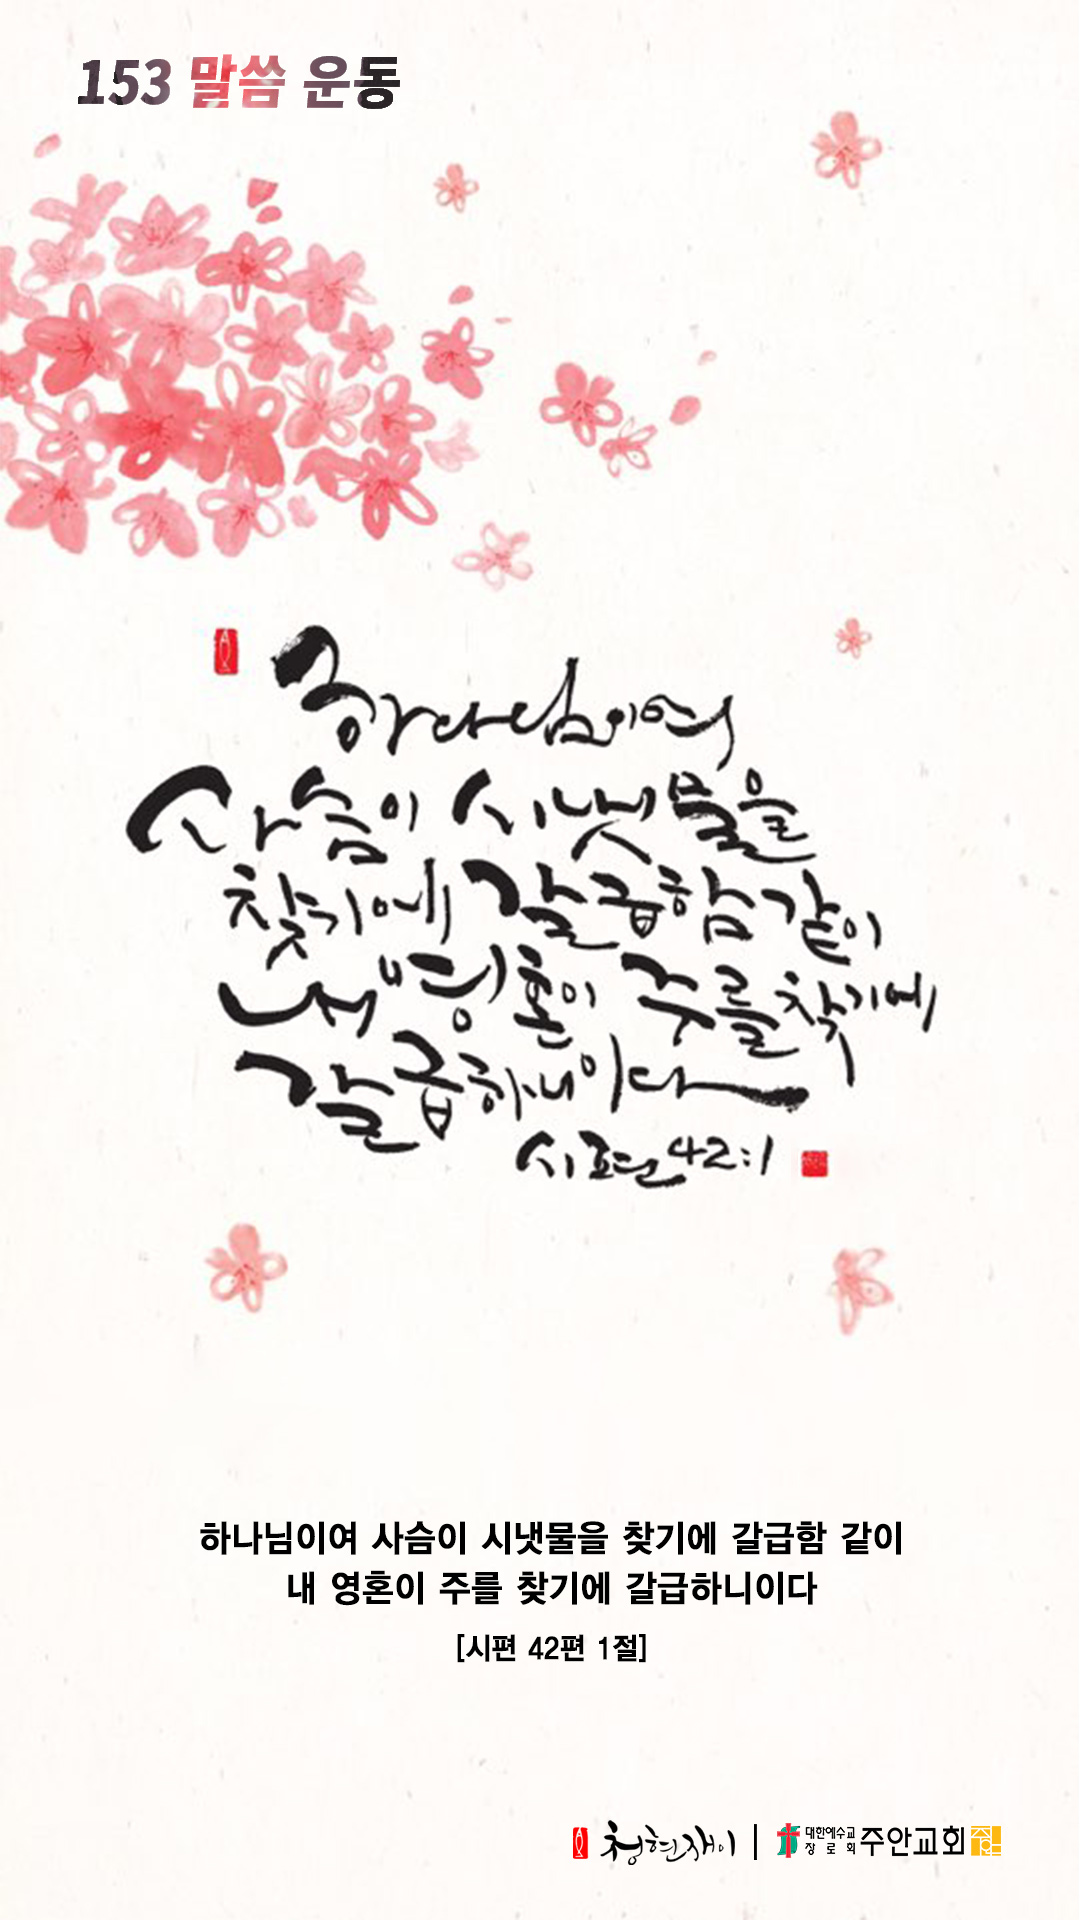 153 말씀 운동
하나님이여
사슴이 시냇물을
찾기에 갈급함 같이
내 영혼이 주를 찾기에
갈급하니이다
시편 42:1
하나님이여 사슴이 시냇물을 찾기에 갈급함 같이
내 영혼이 주를 찾기에 갈급하니이다
[시편 42편 1절]
청현재이 | 대한예수교장로회 주안교회